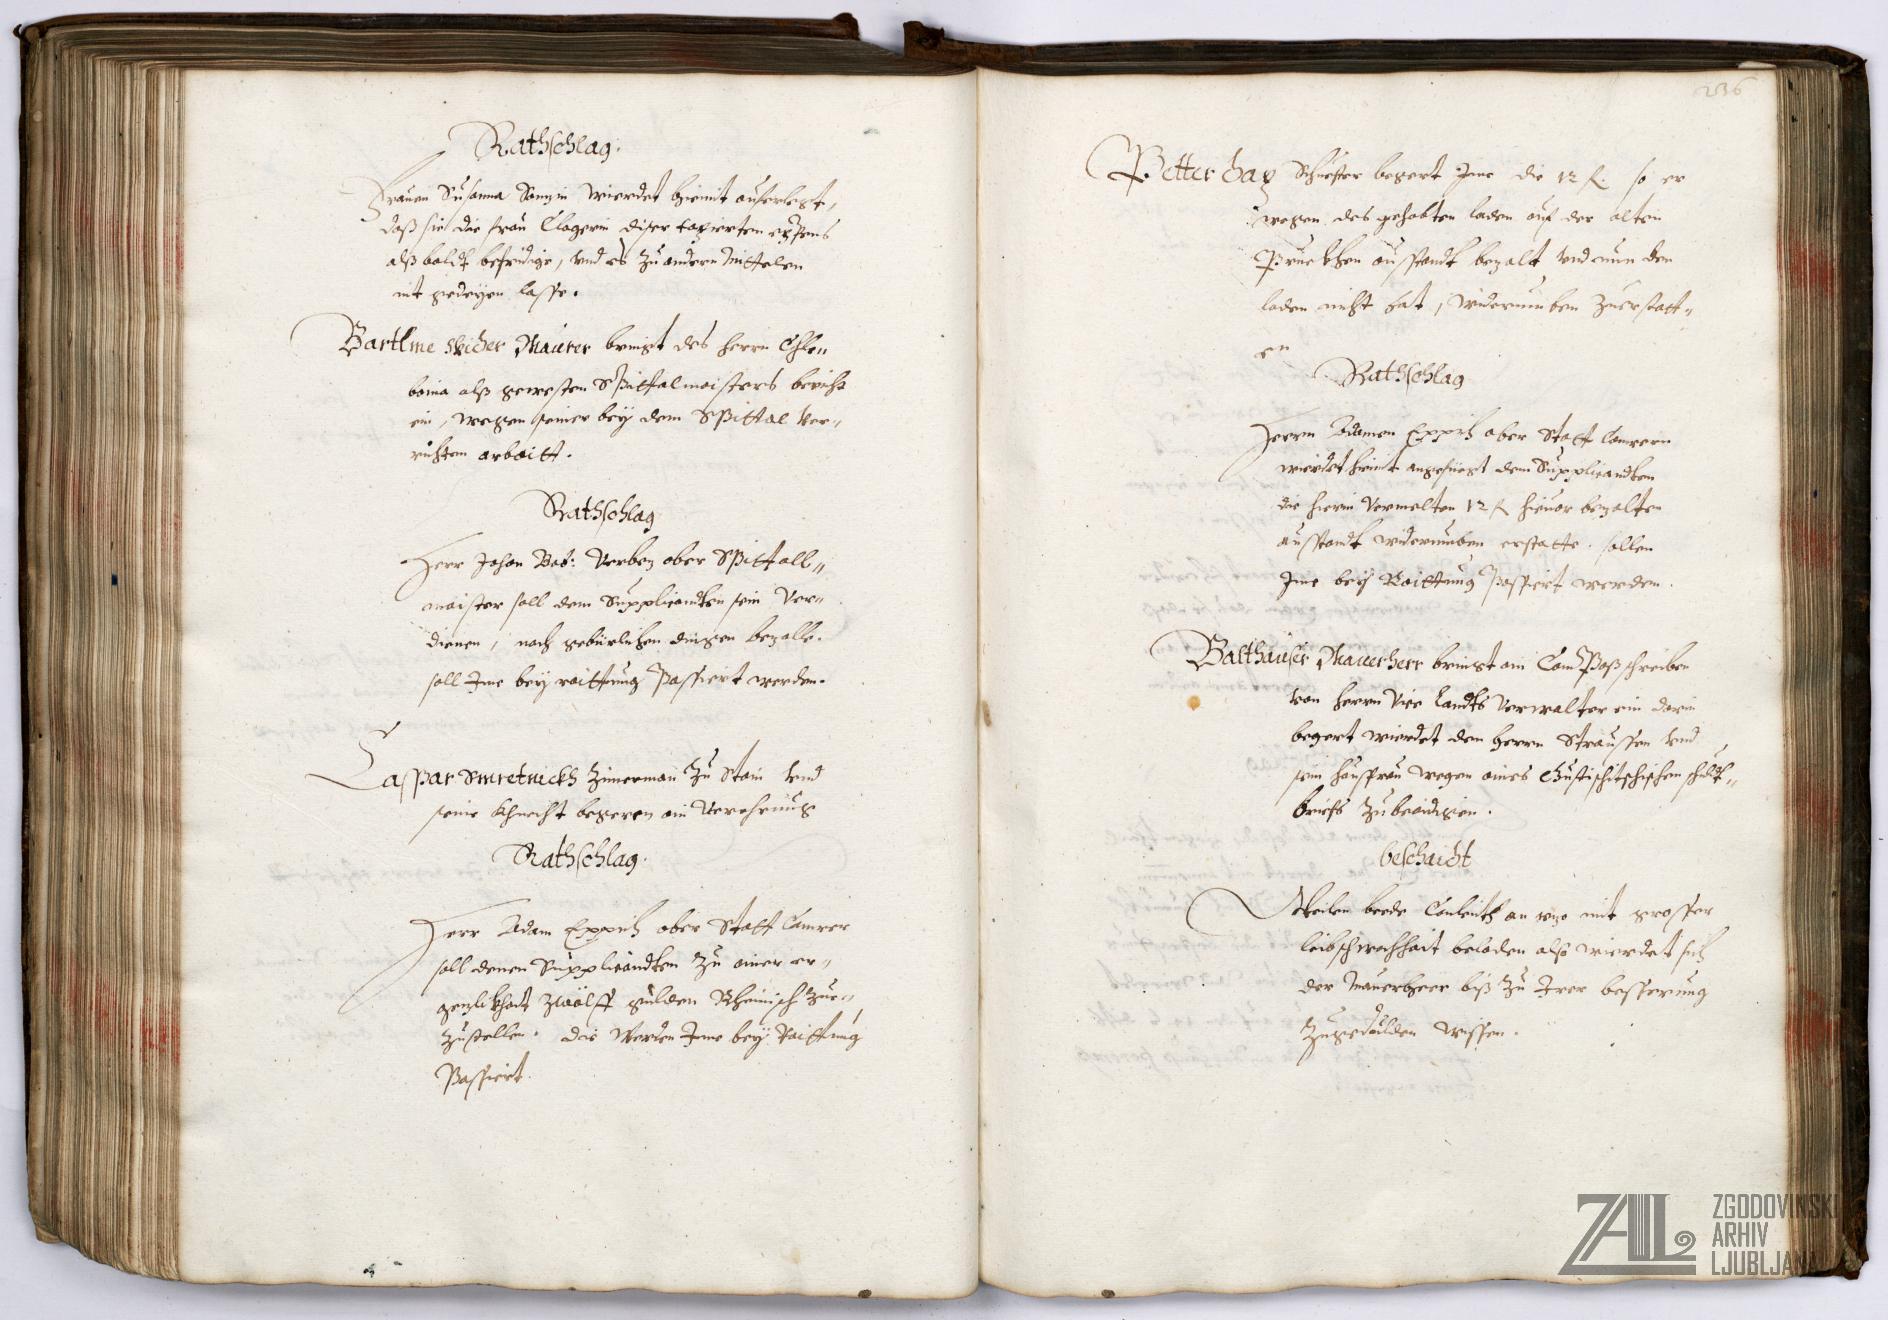 Rathschlag.
Frauen Susanna Sonzin wierdet hiemit auferlegt,
daß sie die frau Clagerin diser taxierten expens
alß baldt befridige, vnd es zu andern Mittelen
nit gedeyen lasse.
Bartlme Maurer bringt des herrn Chle-
boina alß gewesten Spittalmaisters bericht
ein, wegen seiner bey dem Spittal ver-
richten arbaitt.
Rathschlag
Herr Johan Bab: Verbez ober Spittall-
maister soll dem Supplicandten sein Ver-
dienen, nach gebürlichen dingen bezalle.
soll Ime bey raittung Passiert werden.
Caspar Smretnickh Zimerman zu Stain vnd
seine khnecht begeren ain Verehrung
Rathschlag.
Herr Adam Eppich ober Statt Camrer
soll denen Supplicandten zu ainer er-
gezlikhait zwölff gulden Rheinisch zue-
zustellen. die Werden Ime bey Raittung
Passiert.
236
Petter Schuester begert Ime die 12 f. so er
wegen des gehabten laden auf der alten
Pruckhen ausstandt bezalt vnd nun den
laden nicht hat, widerumben zuerstatt-
en
Rathschlag
Herrn Adamen Eppich ober Statt Camrern
wierdet hiemit angefüegt dem Supplicandten
die hierin Vermelten 12 f. hieuor bezalten
ausstandt widerumben erstatte. sollen
Ime bey Raittung Passiert werden.
Balthauser Mauerherr bringt ain Compaßschreiben
von herrn Vice Landts Verwalter ein darin
begert wierdet den herrn Straussen vnd
sein hausfrau wegen aines schuldt-
briefs zubeaidigen.
beschaidt
Weilen beede Conleüth an yezo mit grosser
leibschwachhait beladen also wierdet sich
der Mauerherr biß zu Irer besserung
zugedulden wissen.
ZAL
ZGODOVINSKI
ARHIV
LJUBLJANA